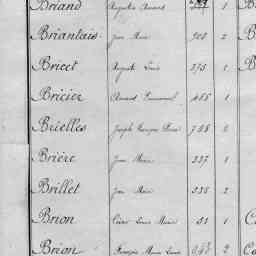 Briand Auguste Amand 1
Briantais Jean Marie 903 2
Bricet Auguste Louis 375 1
Bricier Armand Emmanuel 455 1
Brielles Joseph François Pierre 788
Brière Jean Marie 337 1
Brillet Jean Marie 338 2
Brion Louis Marie 51 1
Brion François Marie Louis 643 2